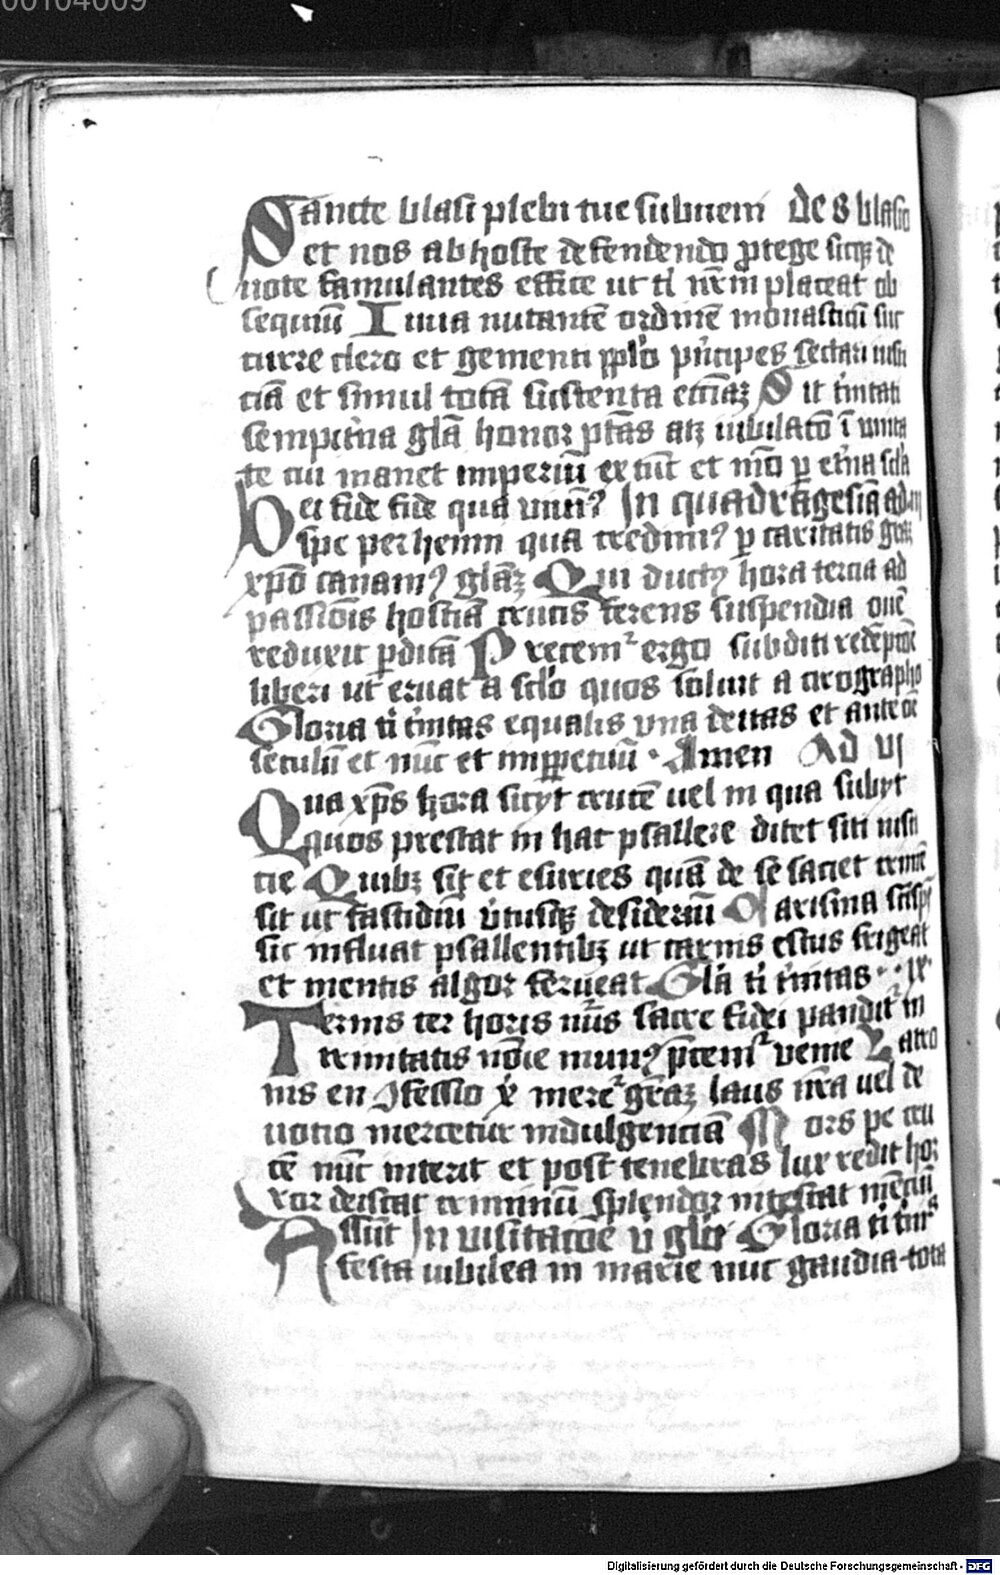 00104009
Sancte blasi plebi tue subueni De s blasio
et nos ab hoste defendendo ꝓtege sicqꝫ de
uote famulantes effice ut tᷝ nrm̄ placeat ob
sequiuʒ Iuua nutantē ordinē monasticū suc
curre clero et gementi pplo pn̄cipes sectari iusti
ciā et simul totā sustenta ecciāꝫ Sit tinitati
sempitna glā honor ptās atqꝫ iubilatō ī unita
te cui manet imperiū ex tūc et mō p et̄na scl̄a
Dei fide qua viuimꝰ In quadragesīa ad
spe perhenni qua credimꝰ ꝑ caritatis grāꝫ
xp̄o canamꝰ glāꝫ Qui ductꝰ hora tercia ad
passiōis hostiā crucis ferens suspendia ouē
reduxit pditā Precemur ergo subditi redēptōe
liberi ut eruat a sclo quos soluit a cirographo
Gloria tⁱ tinitas equalis vna deitas et ante oē
seculū et nūc et imppetuū · Amen Ad vj
Qua xp̄s hora sitijt crucē uel in qua subijt
quos prestat in hac psallere ditet siti iusti
cie Quibꝫ sit et esuries quā de se saciet crimē
sit ut fastidiū v̄tusqꝫ desideriū Carisma sc̄i sp̄s
sic influat psallentibꝫ ut carnis estus frigeat
et mentis algor ferueat Glā tⁱ tinitas · ix
Ternis ter horis nūs sacre fidei pandit in
trinitatis noīe munꝰ pcemur venie Latro
nis en ꝯfessio xp̄i meret grāꝫ laus nr̄a uel de
uotio mercetur indulgenciā Mors per cru
cē nūc interit et post tenebras lux redit hor
ror dehiscat criminū splendor nitescat mēciū
Assūt In visitacōe v̄ glō Gloria tⁱ tini
festa iubilea in marie nūc gaudia tota
Digitalisierung gefördert durch die Deutsche Forschungsgemeinschaft - DFG